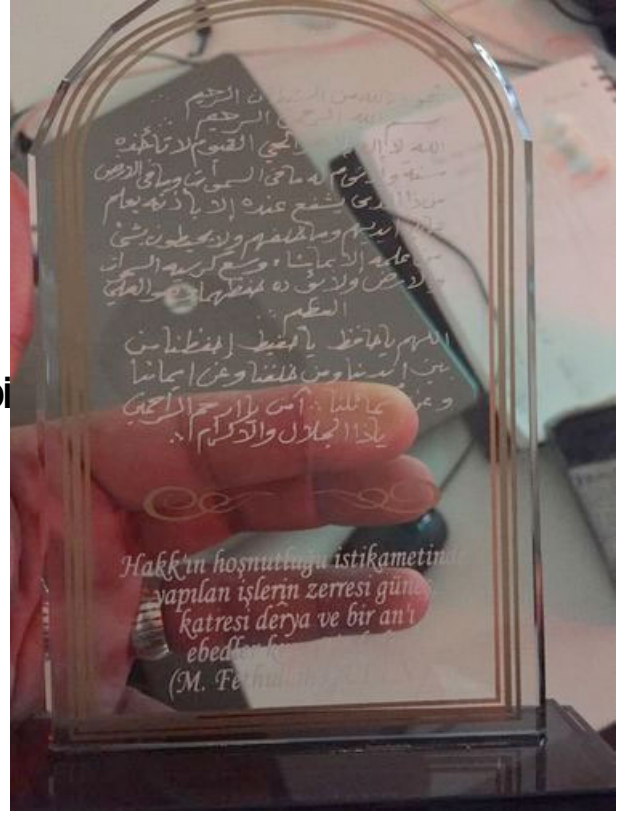 الرحيم
بسم الله الرحمن الرحيم
الله لا إله إلا الحي القيوم لا تأخذه
سنة ولا نوم له ما في السموات وما في الارض
من ذا الذي يشفع عنده إلا باذنه يعلم
أيديهم وما خلفهم ولا يحيطون بشئ
من علمه إلا بما شاء وسع كرسيه السموات
والارض ولا يؤده حفظهما وهو العلي
العظيم
اللهم ياحافظ ياحفيظ إحفظنا من
بين ايدينا ومن خلفنا وعن ايماننا
وعن شمائلنا آمين يا ارحم الراحمين
ياذا الجلال والاكرام
bi
Hakk'ın hoşnutluğu istikametinde
yapılan işlerin zerresi güneş,
katresi derya ve bir an'ı
ebedler
(M.